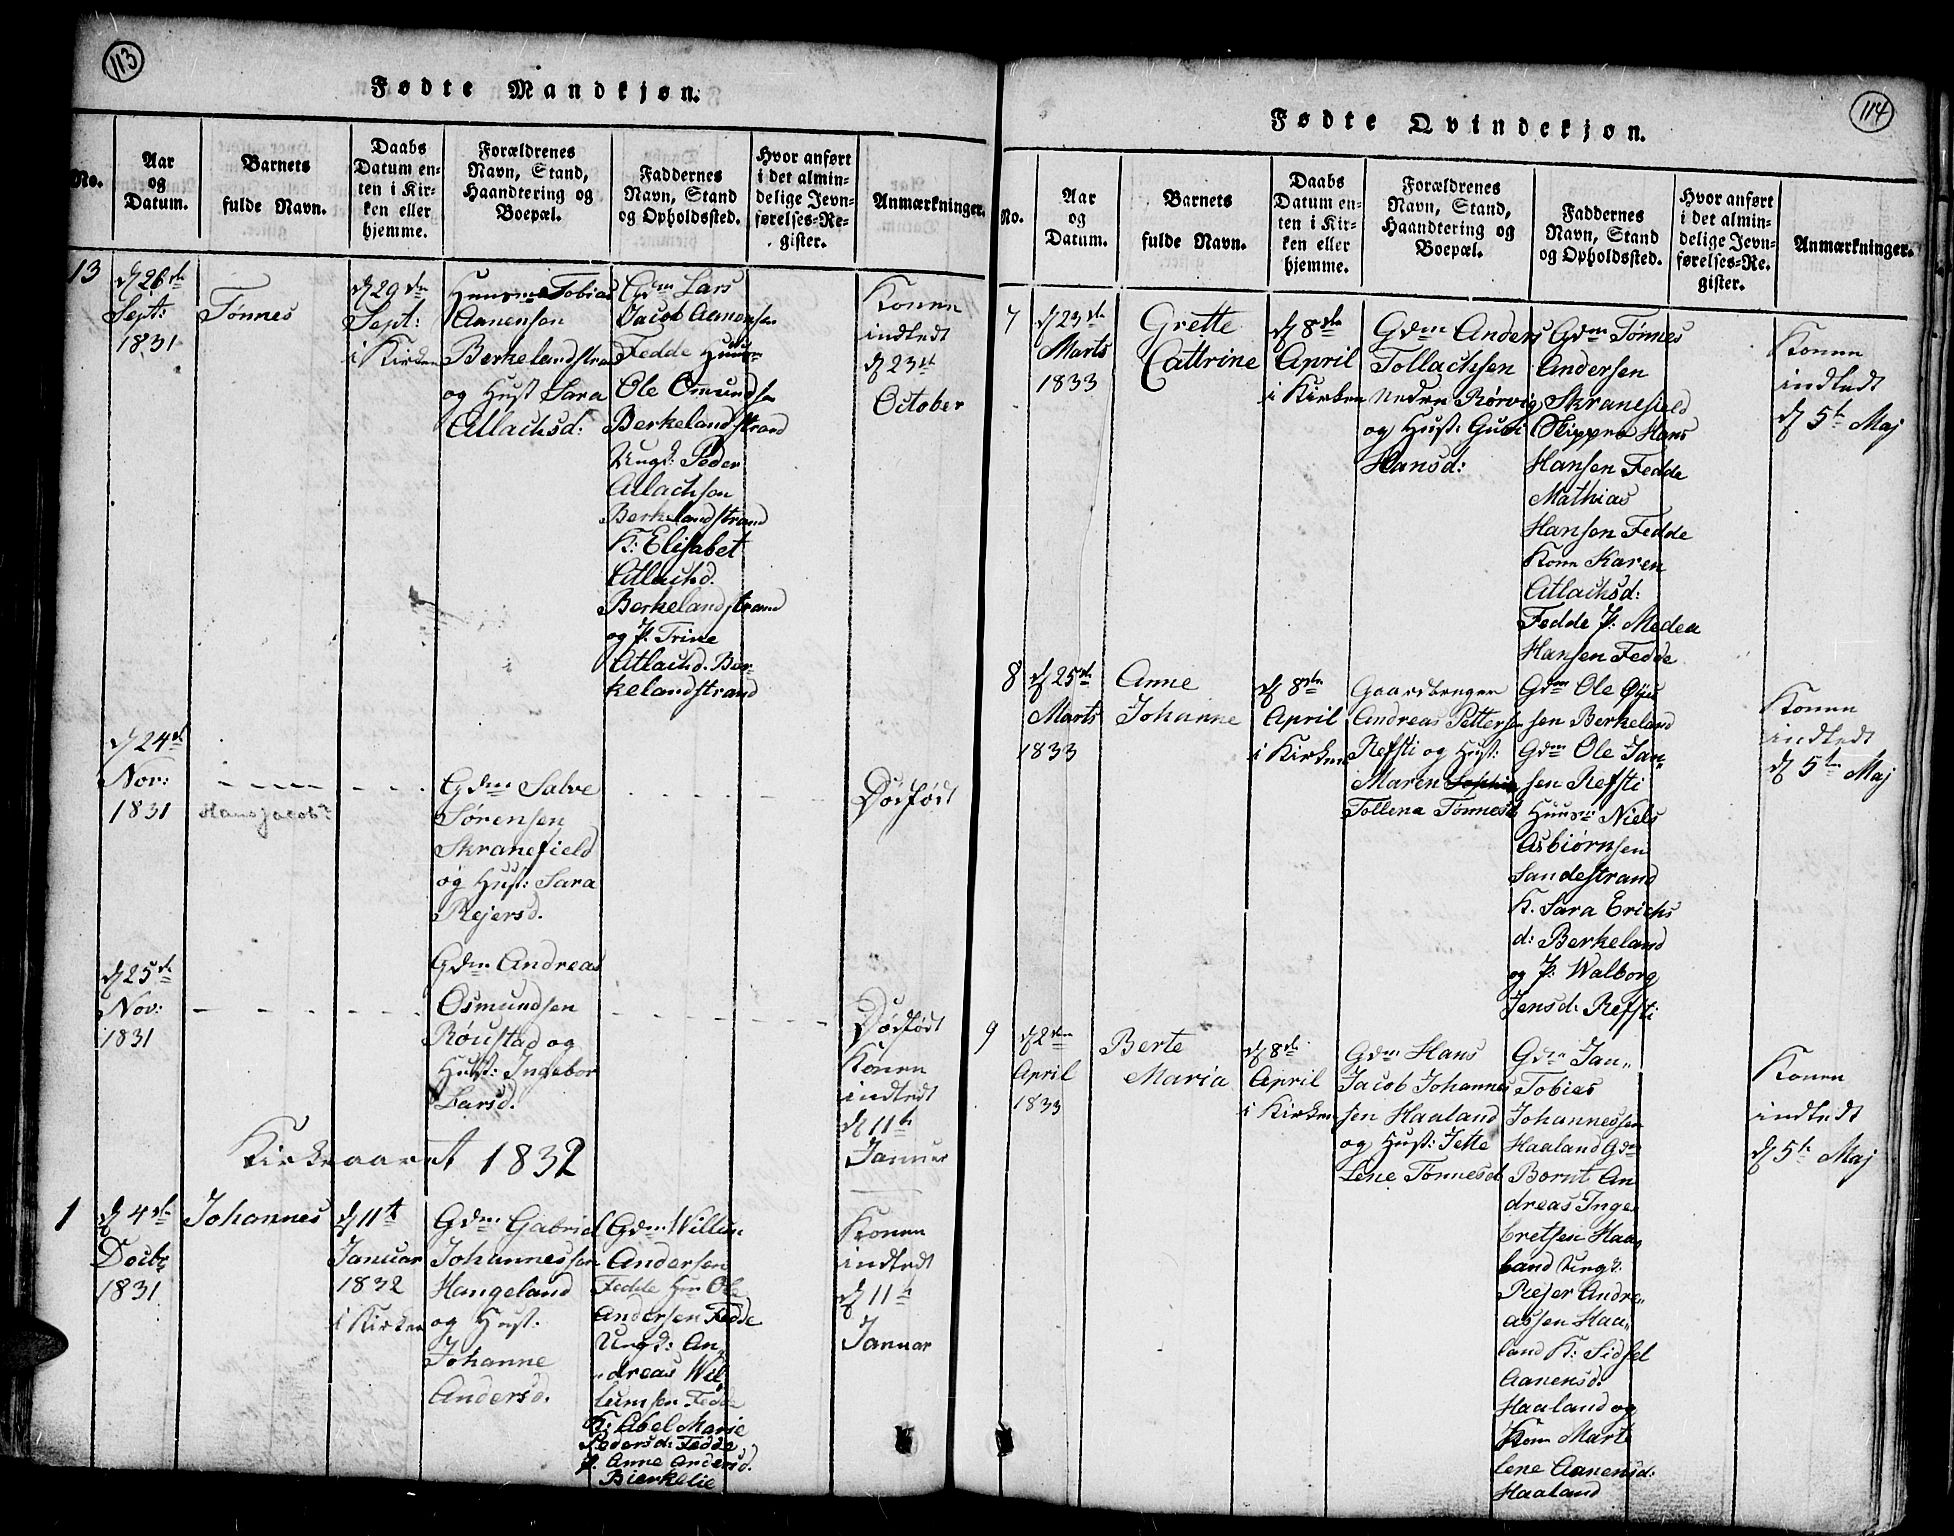 113
Fødte Mandkjøn.
No.
Aar
og
Datum.
Barnets
fulde Navn.
Daabs
Datum en-
ten i Kir-
ken eller
hjemme.
Forældrenes
Navn, Stand,
Haandtering og
Boepæl.
Faddernes
Navn, Stand
og Opholdssted.
Hvor anført
i det almin-
delige Jevn-
førelses-Re-
gister.
Anmærkninger.
13
d 26de
Sept:
1831
Tønnes
d 29de
Sept:
i Kirken
Huusm Tobias
Aanensen
Berkelandstrand
og Hust Sara
Atlachsd:
Gdm Lars
Jacob Aanensen
Fedde Huusm
Ole Omundsen
Berkelandstrand
Ungk: Peder
Atlachsen
Berkelandstrand
K: Elisabet
Atlachd.
Berkelandstrand
og P: Trine
Atlachd. Ber-
kelandstrand
Konen
indledt
d 23de
October
d 24de
Nov:
1831
Hans Jacob?
Gdm Salve
Sørensen
Skranefield
og Hust: Sara
Rejersd.
Dødfødt
d 25de
Nov:
1831
Gdm Andreas
Osmundsen
Røustad og
Hust: Ingebor
Larsd.
Dødfødt
Konen
indledt
d 11te
Januar
Kirkeaaret 1832
1
d 4de
Decbr
1831
Johannes
d 11te
Januar
1832
i Kirken
Gdm Gabriel
Johannessen
Hangeland
og Hust:
Johanne
Andersd.
Gdm Willum
Andersen
Fedde Hm Ole
Andersen Fedde
Ungk: An-
dreas Wil-
lumsen Fedde
K: Abel Marie
Pedersd: Fedde
P. Anne Andersd.
Bierkelie
Konen
indledt
d 11te
Januar
114
Fødte Qvindekjøn.
No.
Aar
og
Datum.
Barnets
fulde Navn.
Daabs
Datum en-
ten i Kir-
ken eller
hjemme.
Forældrenes
Navn, Stand,
Haandtering og
Boepæl.
Faddernes
Navn, Stand
og Opholdssted.
Hvor anført
i det almin-
delige Jevn-
førelses-Re-
gister.
Anmærkninger.
7
d 23de
Marts
1833
Grette
Cattrine
d 8de
April
i Kirken
Gdm Anders
Tollachsen
Neden Rørvig
og Hust: Guri
Hansd:
Gdm Tønnes
Andersen
Skranefield
Skipper Hans
Hansen Fedde
Mathias
Hansen Fedde
Kone Karen
Atlachsd:
Fedde P: Medea
Hansen Fedde
Konen
indledt
d 5te Maj
8
d 25de
Marts
1833
Anne
Johanne
d 8de
April
i Kirken
Gaardbruger
Andreas Petterssen
Refsti og Hust:
Maren Sophia
Tollena Tønnesd
Gdm Ole Øye
sen Berkeland
Gdm Ole Jan-
sen Refsti
Huusm Niels
Asbiørnsen
Sandestrand
K. Sara Erichs
d: Berkeland
og P: Walborg
Jensd: Reffti
Konen
indledt
d 5te Maj
9
d 2den
April
1833
Berte
Maria
d 8de
April
i Kirken
Gdm Hans
Jacob Johannes
sen Haaland
og Hust: Jette
Lene Tønnesd
Gdm Jan-
Tobias
Johannessen
Haaland Gdm
Bornt An
dreas Inge
bretsen Haa
land Ungk:
Rejer Andre-
assen Haa-
land K: Sidsel
Aanensd:
Haaland og
Kone Marte
Lene Aanensd:
Haaland
Konen
indledt
d 5te Maj